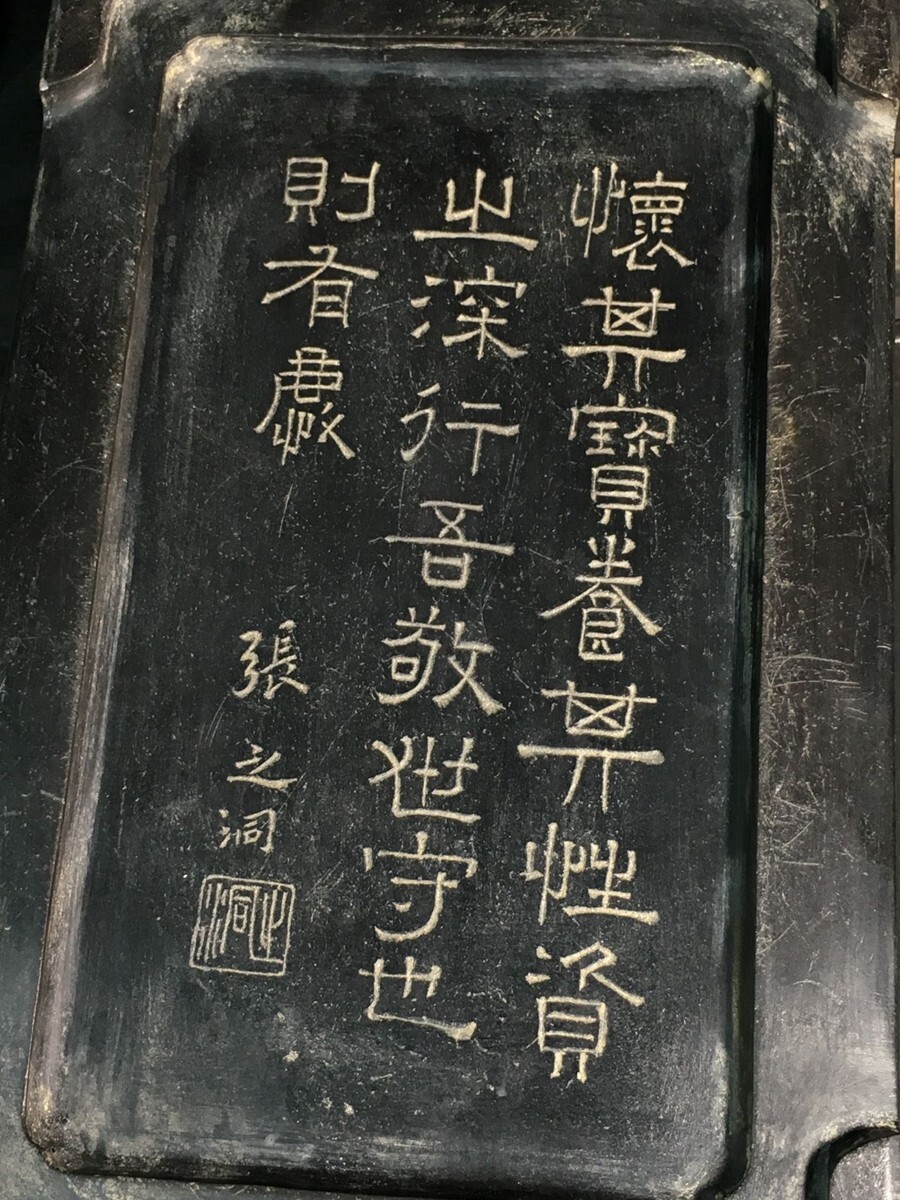 懷其寶養其性資
之深行吾敬世守也
則有慶
張之洞
之洞